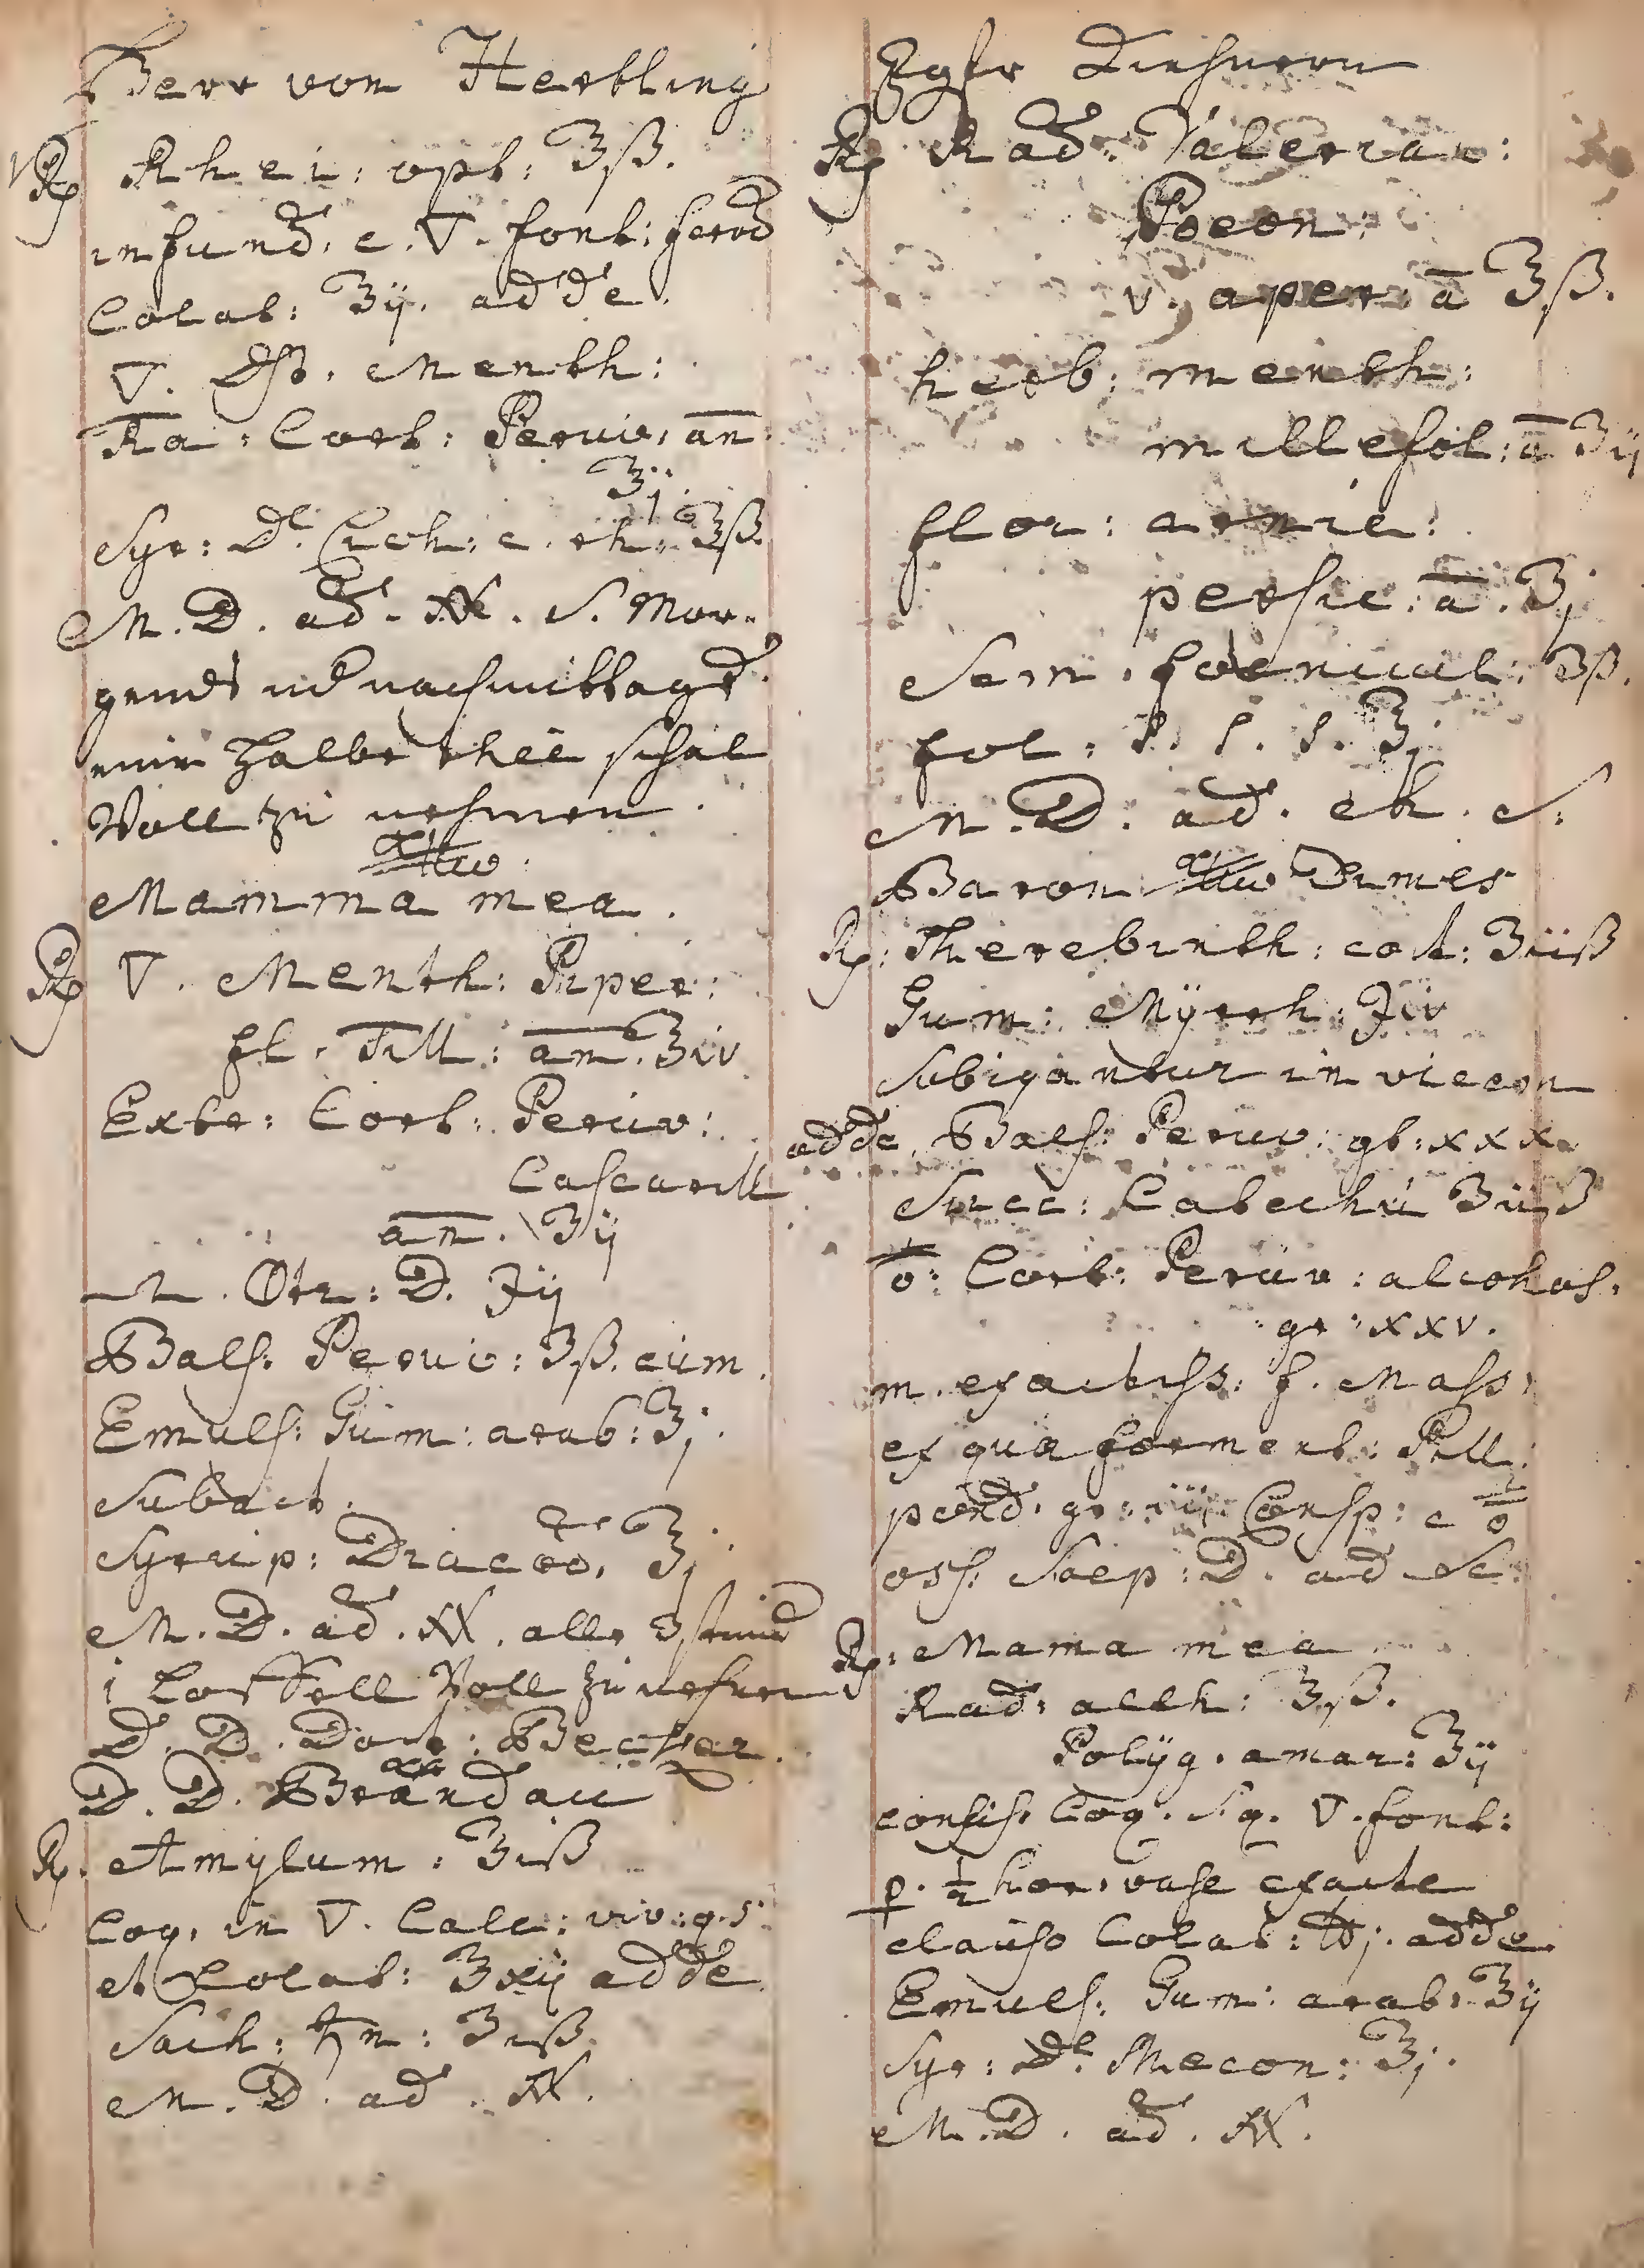 Herr von Hertling
℞ Rhei: opt: ʒß.
infund. c. ▽. font: ferv̄d
Colat: ℥ij. adde.
▽. Dst. Menth:
Ra: Cort: Peruv: an
℥j.
Syr: de Cich: c. rh: ℥ß.
M. D. ad. . S. Mor-
gends und nachmittags
eine halbe thee schal
Voll zu nehmen.
Mamma mea.
℞ ▽. Menth: Piper:
fl. Till: an. ℥iv
Extr: Cort: Peruv:
Cascarill
an. ʒij
D. ij
Bals. Peruv: ʒß. cum.
Emuls: Gum: arab: ℥j.
Subact.
Syrup: Diacod. ℥j
M. D. ad. . alle 3 stund
1 Löffell Voll zu nehmen
D. D. Doct: Becker.
D. D. Brandau
℞. Amylum: ʒiß
Coq. in ▽. Calc: viv: q. s.
et Colat: ℥xij adde
Sach: ♄n: ʒiß.
M. D. ad.
℞ Rad: Valerian:
Poeon:
v. aper: a ℥ß.
herb: menth:
millefol: a ʒij
flor: arnic:
persic: a. ʒj
Sem. foenicul: ʒß.
fol. S. s. s. ℥j
M. D: ad. ch. S:
Baron Dumes
℞: Therebinth: coct: ʒiiß
Gum: Myrrh: iv
Subigantur in viccon
adde. Bals: Peruv: gt: xxx.
Succ: Catechu ʒiiß
Cort: Peruv: alcohos.
gr: xxv.
m. exactiss: f. Mass:
ex qua forment: Pill:
pond. gr: iij Consp: c
oss: Saep: D. ad Sc:
℞: Mama mea
Rad: alth: ℥ß.
Polyg. amar: ʒij
consis. Coq. S. q. ▽. font:
p. ½ hor. vase exacte
clauso Colat: ℔j. adde
Emuls: Gum: arab: ℥ij
Syr: de Mecon: ℥j.
M. D. ad.